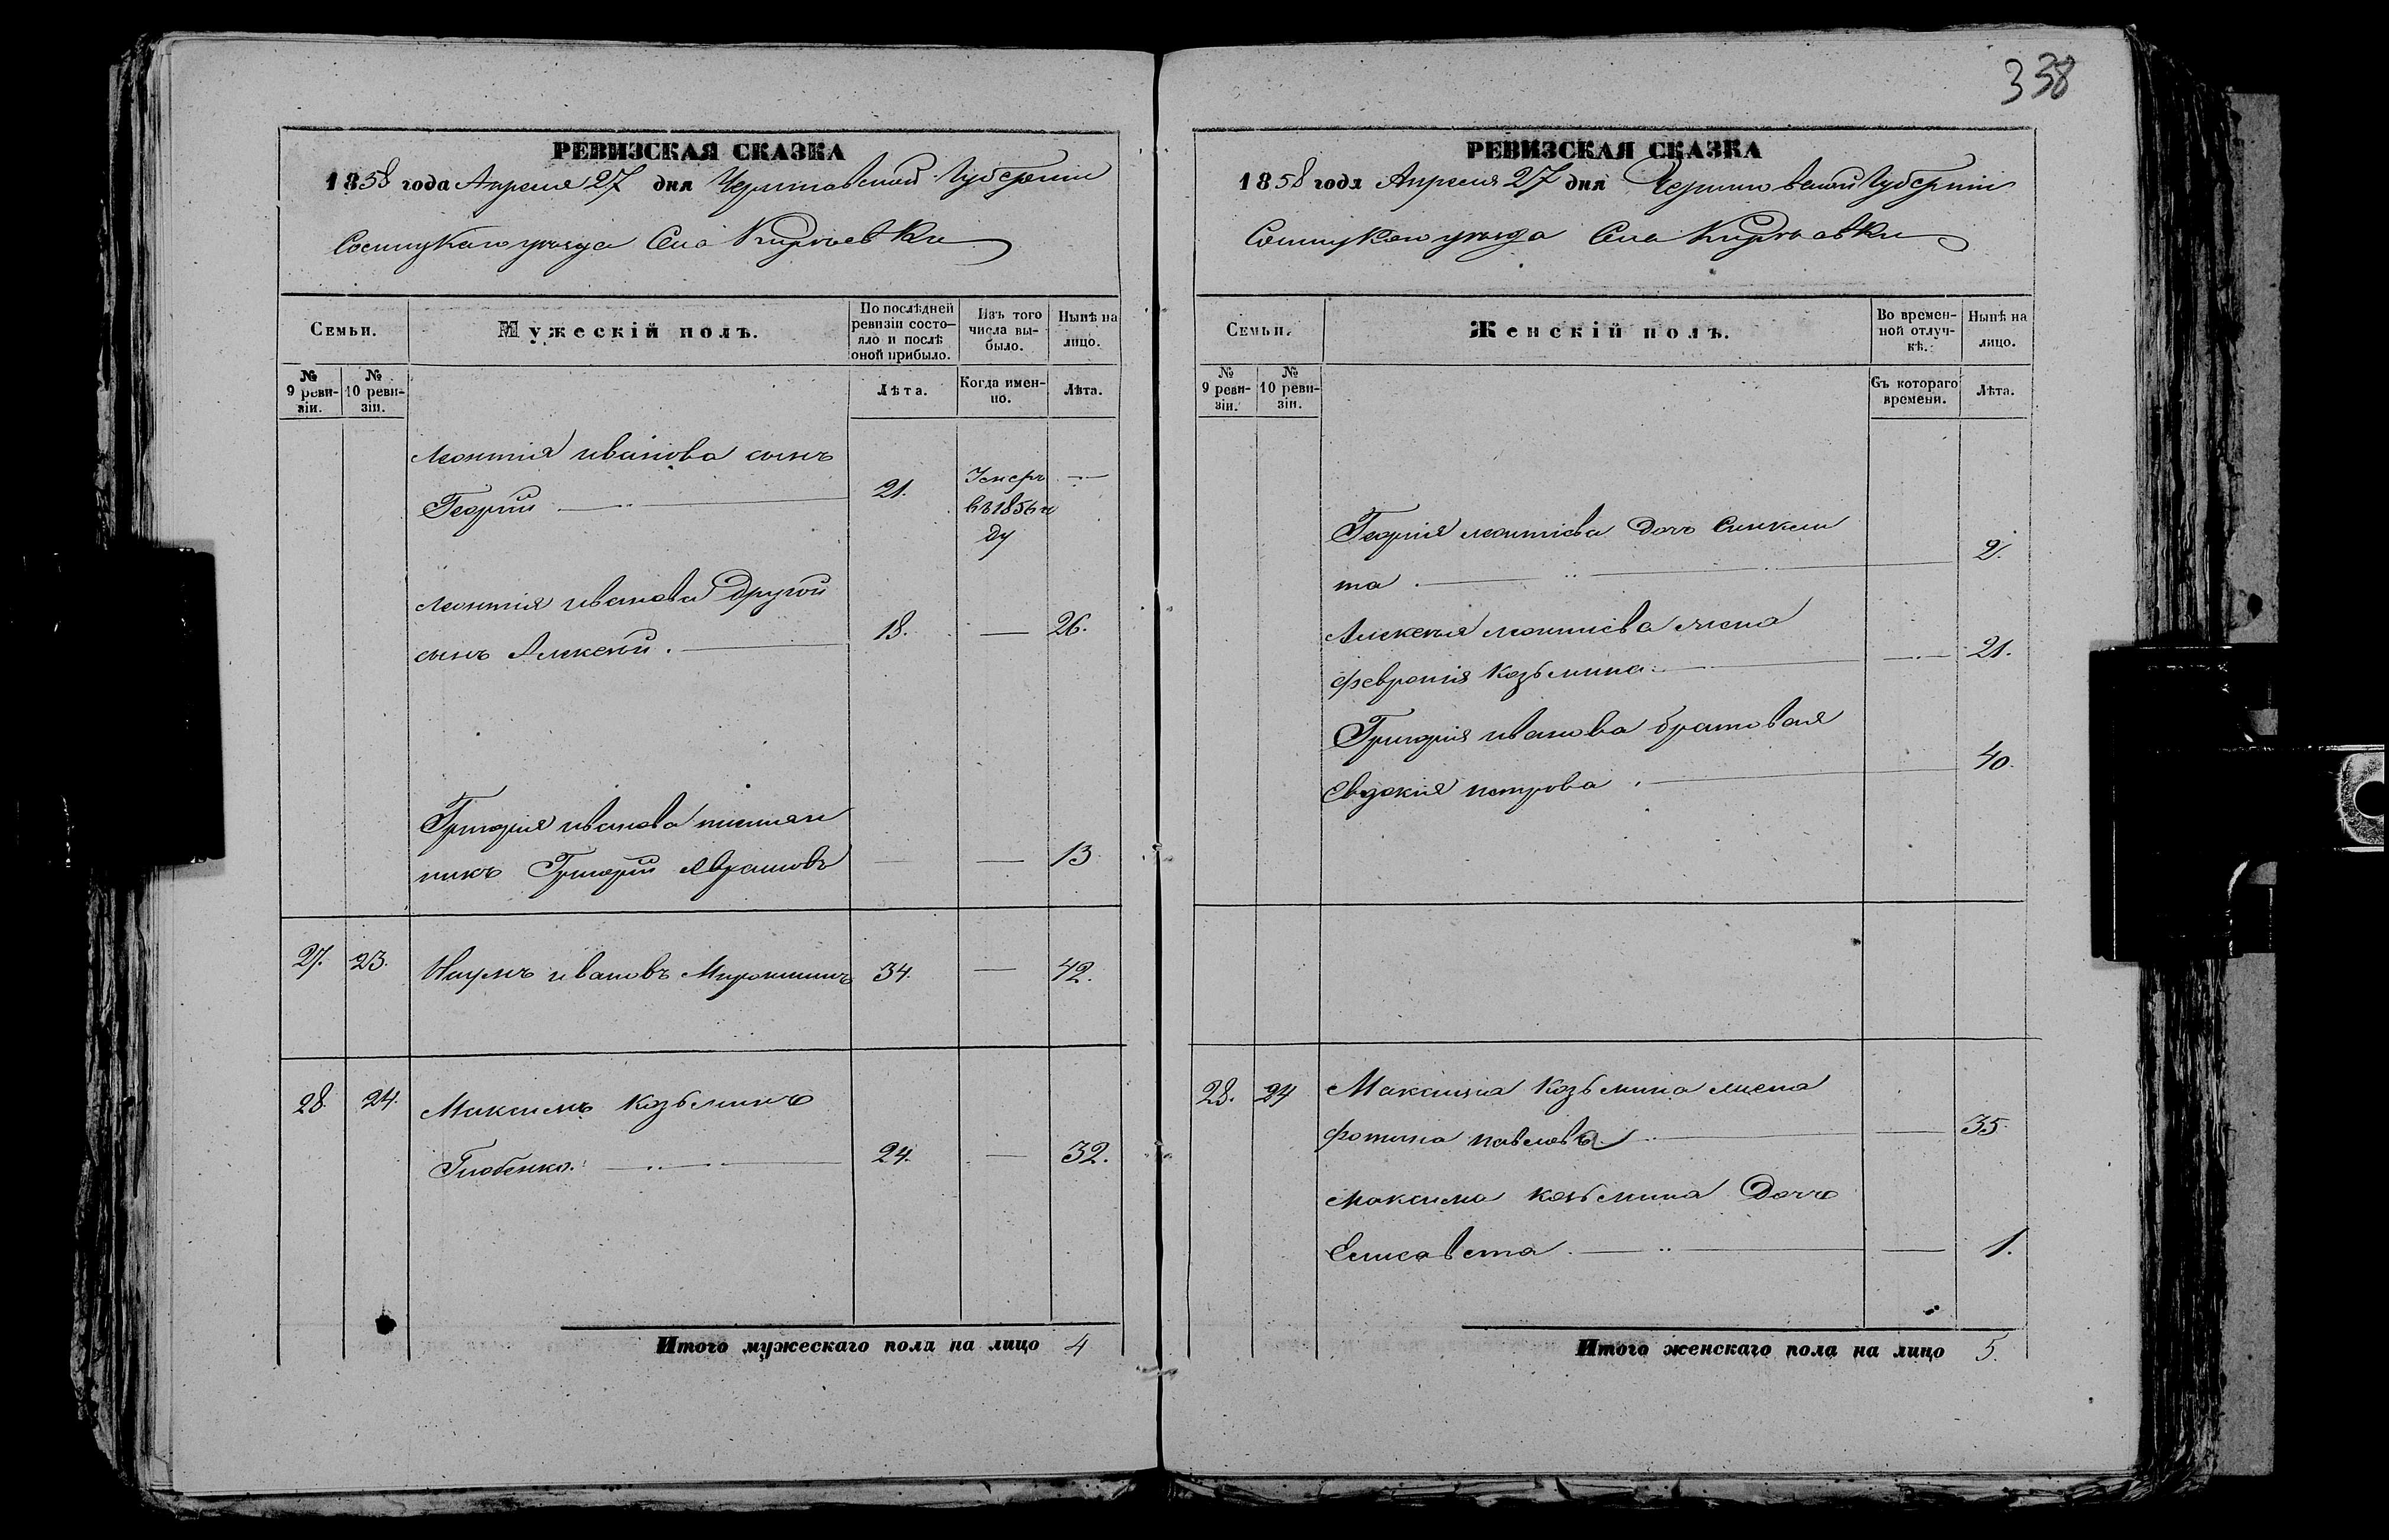 338
РЕВИЗСКАЯ СКАЗКА
1858 года Апреля 27 дня Черниговской Губернии
Сосницкаго уѣзда Села Киріевки
Семьи.
Мужескій полъ.
По послѣдней ревизіи состояло и послѣ оной прибыло.
Изъ того числа выбыло.
Нынѣ на лицо.
№ 9 ревизіи.
№ 10 ревизіи.
Лѣта.
Когда именно.
Лѣта.
Леонтія Иванова сынъ
Георгий 21. Умеръ —
въ 1856 го
ду
Леонтія Иванова другой
сынъ Алексей. 18. — 26.
Григория Иванова племян
никъ Григорий Аврамовъ — — 13
27. 23. Наумъ Ивановъ Мирошникъ 34. — 42.
28. 24. Максимъ Козьминъ
24. — 32.
Итого мужескаго пола на лицо 4
РЕВИЗСКАЯ СКАЗКА
1858 года Апреля 27 дня Черниговской Губерніи
Сосницкаго уѣзда Села Киріевки
Семьи.
Женскій полъ.
Во временной отлучкѣ.
Нынѣ на лицо.
№ 9 ревизіи.
№ 10 ревизіи.
Съ котораго времени.
Лѣта.
Георгия Леонтіева дочь Синкли
та. 2.
Алексея Леонтиева жена
Февронія Козьмина — 21.
Григория Иванова братовая
Евдокия Петрова. 40.
28. 24 Максима Козьмина жена
Фотина Павлова — 35.
Максима Козьмина дочь
Елисавета. — 1.
Итого женскаго пола на лицо 5.